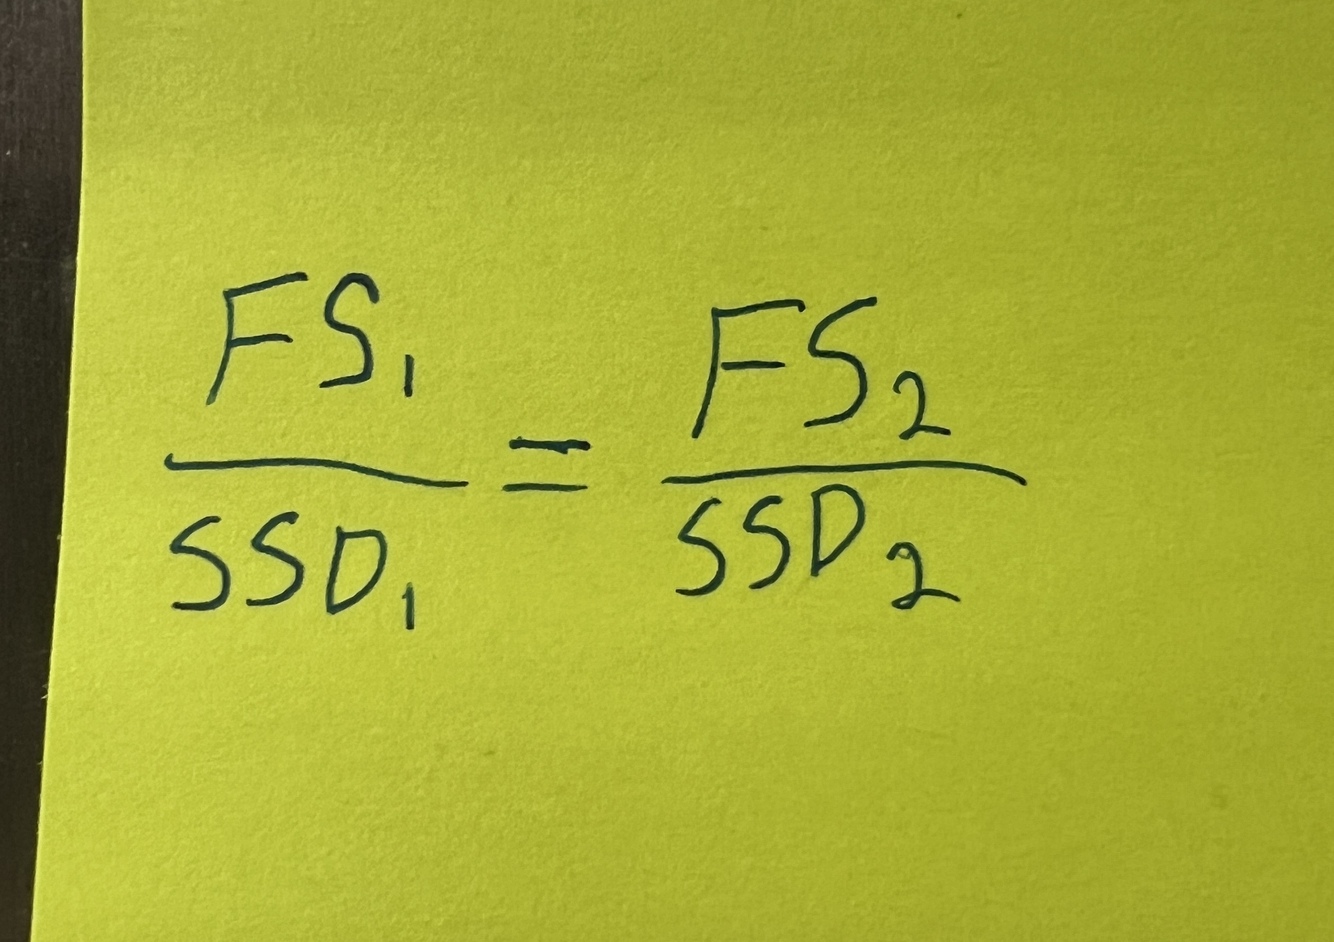 FS₁ / SSD₁ = FS₂ / SSD₂